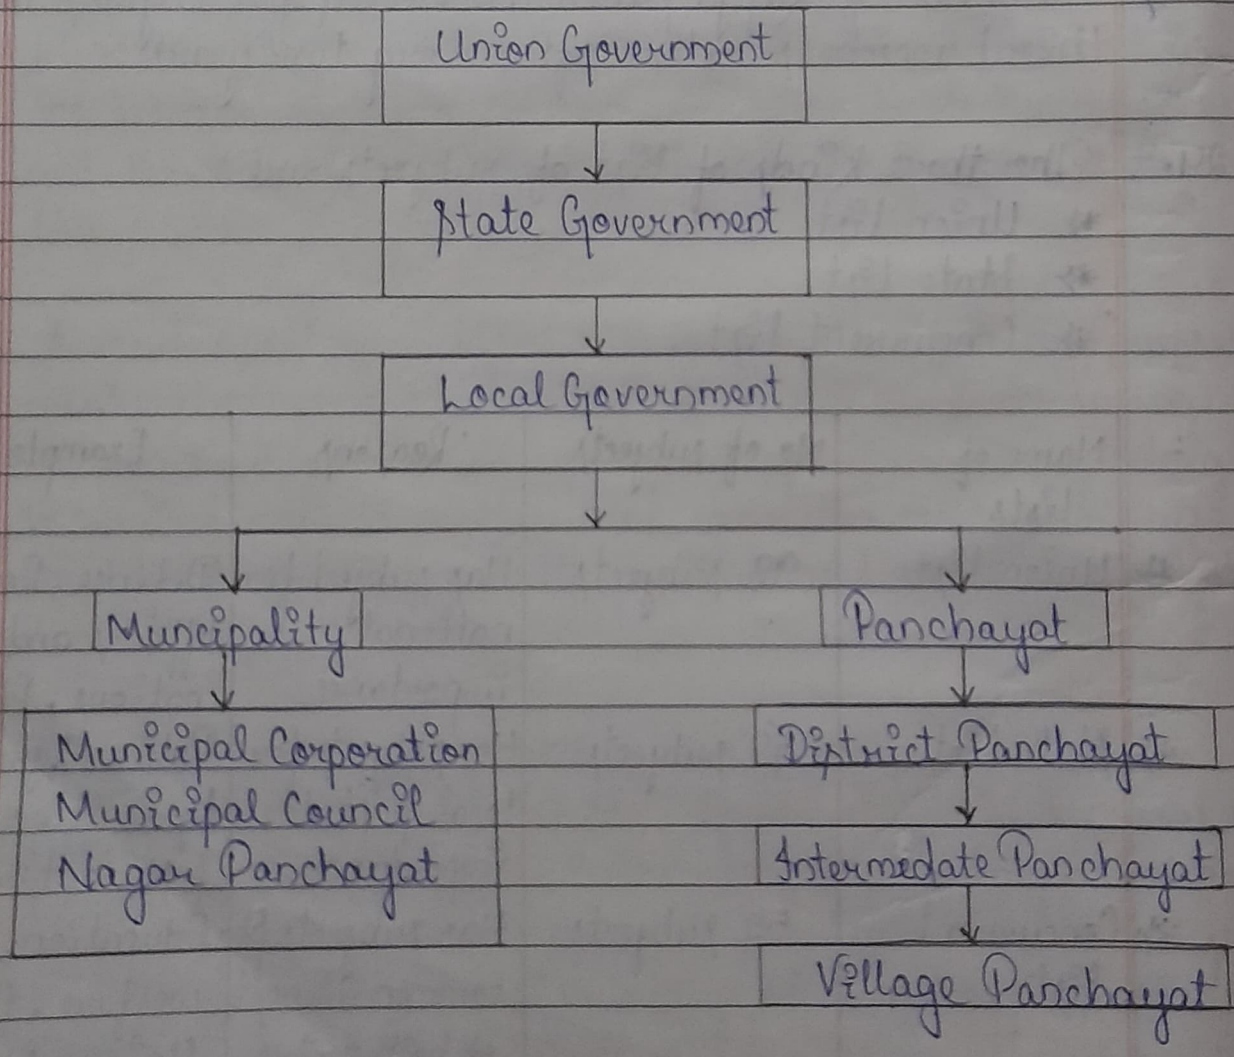 Union Government
State Government
Local Government
Muncipality
Panchayat
Municipal Corporation
Municipal Council
Nagar Panchayat
District Panchayat
Intermedate Panchayat
Village Panchayat